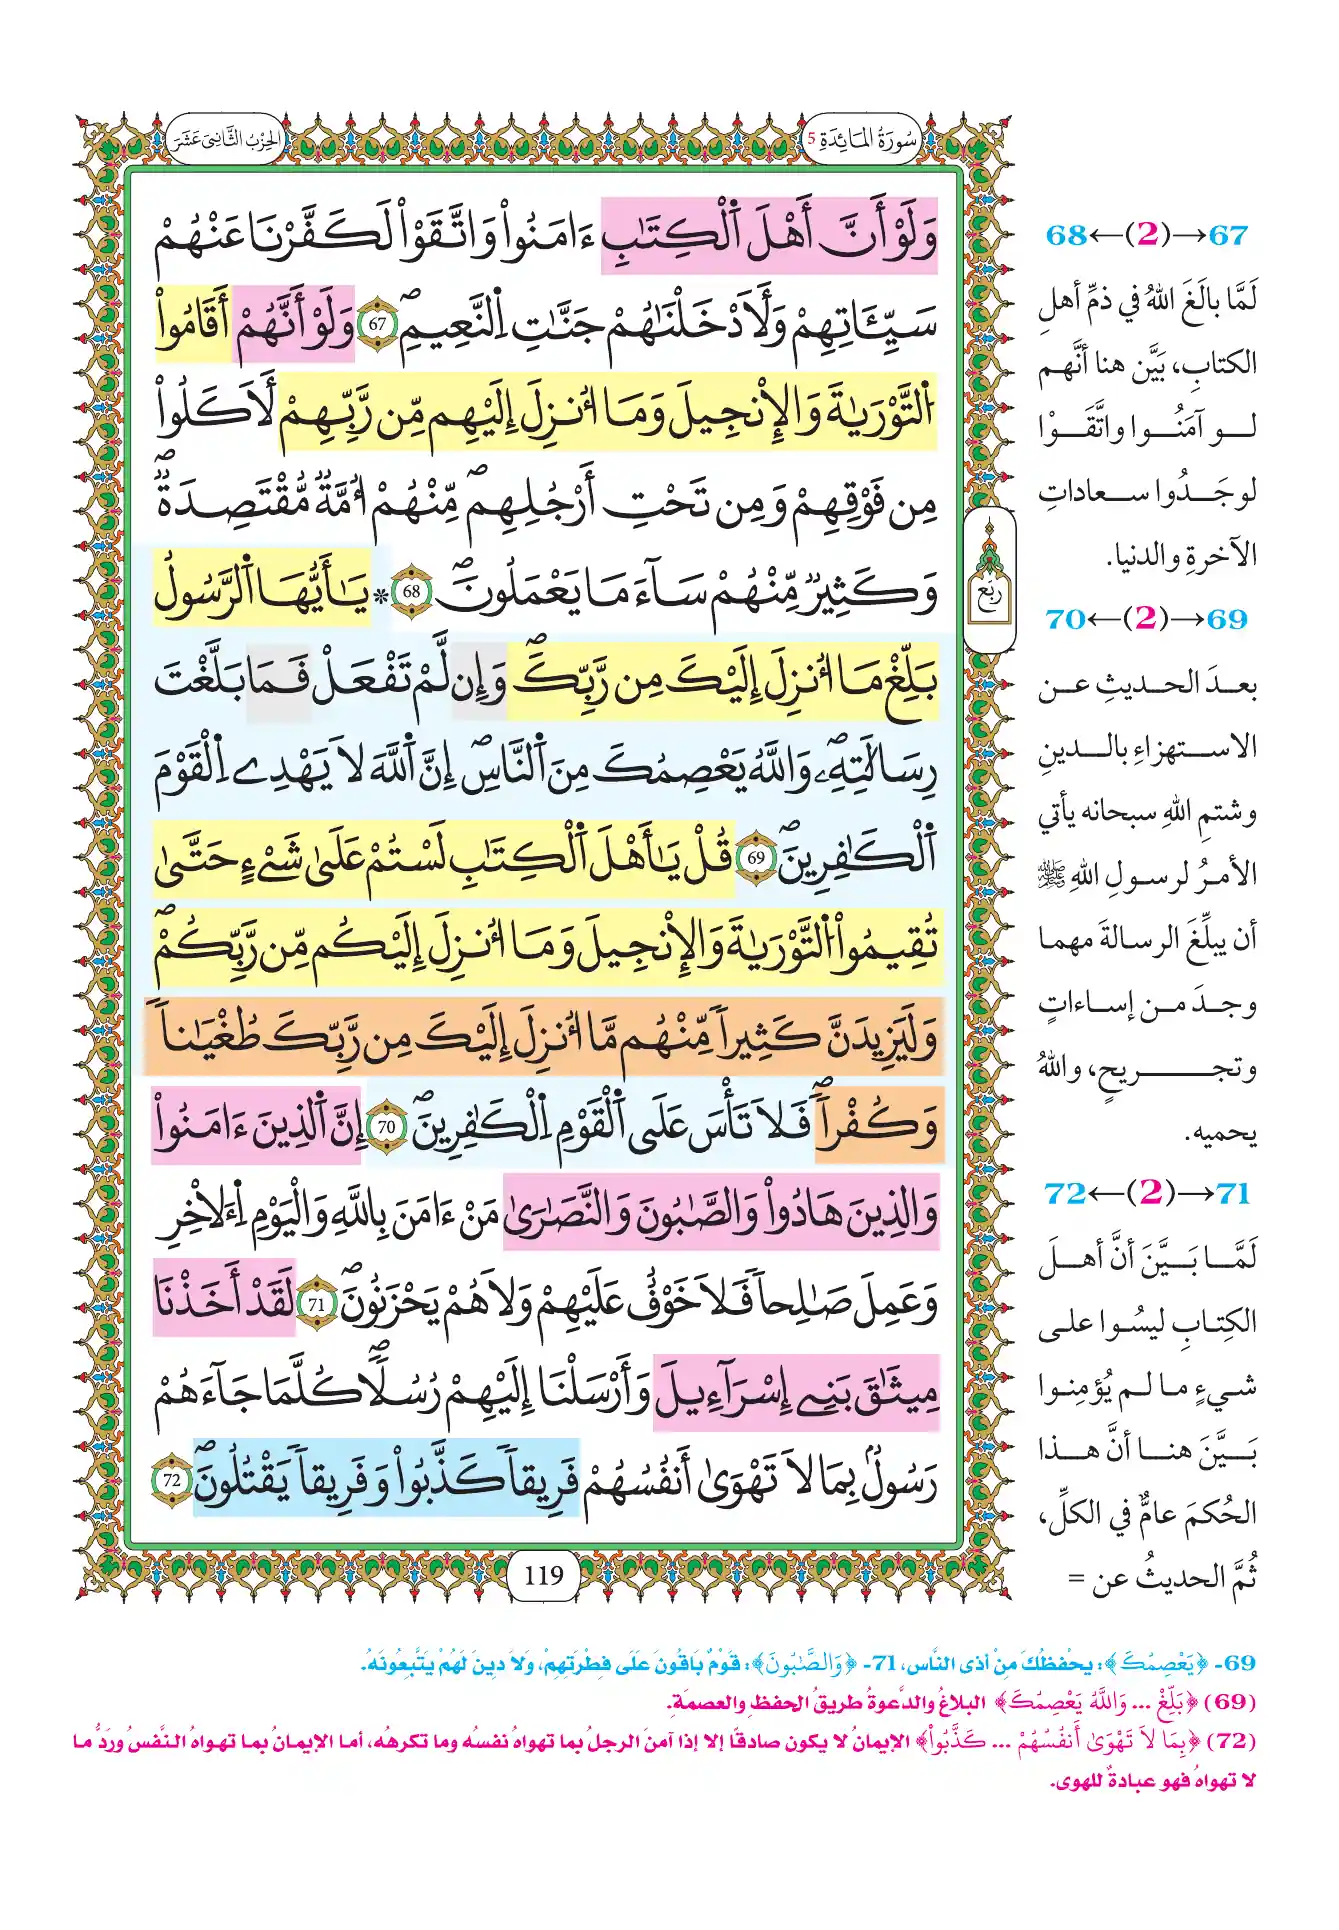 سُورَةُ المَائِدَةِ 5
الحِزْبُ الثَّانِي عَشَرَ
وَلَوْ أَنَّ أَهْلَ اَلْكِتَٰبِ ءَامَنُواْ وَاتَّقَوْاْ لَكَفَّرْنَا عَنْهُمْ
سَيِّـَٔاتِهِمْ وَلَأَدْخَلْنَٰهُمْ جَنَّٰتِ اِلنَّعِيمِۖ 67 وَلَوْ أَنَّهُمْ أَقَامُواْ
اُلتَّوْرَيٰةَ وَالِانْجِيلَ وَمَا أُنزِلَ إِلَيْهِم مِّن رَّبِّهِمْ لَأَكَلُواْ
مِن فَوْقِهِمْ وَمِن تَحْتِ أَرْجُلِهِمۖ مِّنْهُمْ أُمَّةٌ مُّقْتَصِدَةٌۖ
وَكَثِيرٌ مِّنْهُمْ سَآءَ مَا يَعْمَلُونَۖ 68 * يَٰأَيُّهَا اَلرَّسُولُ
بَلِّغْ مَا أُنزِلَ إِلَيْكَ مِن رَّبِّكَۖ وَإِن لَّمْ تَفْعَلْ فَمَا بَلَّغْتَ
رِسَالَٰتِهِۦۖ وَاللَّهُ يَعْصِمُكَ مِنَ اَلنَّاسِۖ إِنَّ اَللَّهَ لَا يَهْدِے اِلْقَوْمَ
اَلْكَٰفِرِينَۖ 69 قُلْ يَٰأَهْلَ اَلْكِتَٰبِ لَسْتُمْ عَلَىٰ شَےْءٍ حَتَّىٰ
تُقِيمُواْ اُلتَّوْرَيٰةَ وَالِانْجِيلَ وَمَا أُنزِلَ إِلَيْكُم مِّن رَّبِّكُمْۖ
وَلَيَزِيدَنَّ كَثِيراً مِّنْهُم مَّا أُنزِلَ إِلَيْكَ مِن رَّبِّكَ طُغْيَٰناً
وَكُفْراًۖ فَلَا تَأْسَ عَلَى اَلْقَوْمِ اِلْكَٰفِرِينَۖ 70 إِنَّ اَلذِينَ ءَامَنُواْ
وَالذِينَ هَادُواْ وَالصَّٰبُونَ وَالنَّصَٰرَىٰ مَنْ ءَامَنَ بِاللَّهِ وَالْيَوْمِ اِلَاخِرِ
وَعَمِلَ صَٰلِحاً فَلَا خَوْفٌ عَلَيْهِمْ وَلَا هُمْ يَحْزَنُونَۖ 71 لَقَدْ أَخَذْنَا
مِيثَٰقَ بَنِے إِسْرَآءِيلَ وَأَرْسَلْنَا إِلَيْهِمْ رُسُلاًۖ كُلَّمَا جَآءَهُمْ
رَسُولٌ بِمَا لَا تَهْوَىٰ أَنفُسُهُمْ فَرِيقاً كَذَّبُواْ وَفَرِيقاً يَقْتُلُونَۖ 72
رُبُع
119
67→(2)←68
لَمَّا بالَغَ اللهُ في ذمِّ أهلِ
الكتابِ، بَيَّن هنا أنَّهم
لو آمَنُوا واتَّقَوْا
لوجَدُوا سعاداتِ
الآخرةِ والدنيا.
69→(2)←70
بعدَ الحديثِ عن
الاستهزاءِ بالدينِ
وشتمِ اللهِ سبحانه يأتي
الأمرُ لرسولِ اللهِ ﷺ
أن يبلِّغَ الرسالةَ مهما
وجدَ من إساءاتٍ
وتجريحٍ، واللهُ
يحميه.
71→(2)←72
لَمَّا بَيَّنَ أنَّ أهلَ
الكِتابِ ليسُوا على
شيءٍ ما لم يُؤمِنوا
بَيَّنَ هنا أنَّ هذا
الحُكمَ عامٌّ في الكلِّ،
ثُمَّ الحديثُ عن =
69- ﴿يَعْصِمُكَ﴾: يحْفظُكَ مِنْ أذى النَّاسِ، 71- ﴿وَالصَّٰبُونَ﴾: قَوْمٌ بَاقُونَ عَلَى فِطْرَتِهِمْ، وَلاَ دِينَ لَهُمْ يَتَّبِعُونَهُ.
(69) ﴿بَلِّغْ ... وَاللَّهُ يَعْصِمُكَ﴾ البلاغُ والدَّعوةُ طريقُ الحفظِ والعصمَةِ.
(72) ﴿بِمَا لَا تَهْوَىٰ أَنفُسُهُمْ ... كَذَّبُواْ﴾ الإيمانُ لا يكون صادقًا إلا إذا آمنَ الرجلُ بما تهواهُ نفسُه وما تكرهُه، أما الإيمانُ بما تهواهُ النَّفسُ وردُّ ما
لا تهواهُ فهو عبادةٌ للهوى.